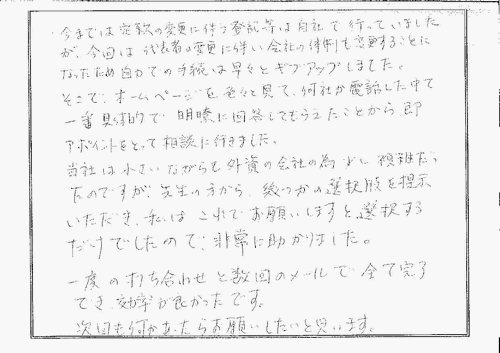 今までは定款の変更に伴う登記等は自社で行っていました
が、今回は代表者の変更に伴い会社の体制も変更することに
なったため自力での手続は早々とギブアップしました。
そこで、ホームページを色々と見て、何社か電話した中で
一番具体的で明瞭に回答してもらえたことから即
アポイントをとって相談に行きました。
当社は小さいながらも外資の会社の為少し複雑だっ
たのですが、先生の方から、幾つかの選択肢を提示
いただき、私はこれでお願いしますと選択する
だけでしたので、非常に助かりました。
一度の打ち合わせと数回のメールで全て完了
でき、効率が良かったです。
次回も何かあったらお願いしたいと思います。